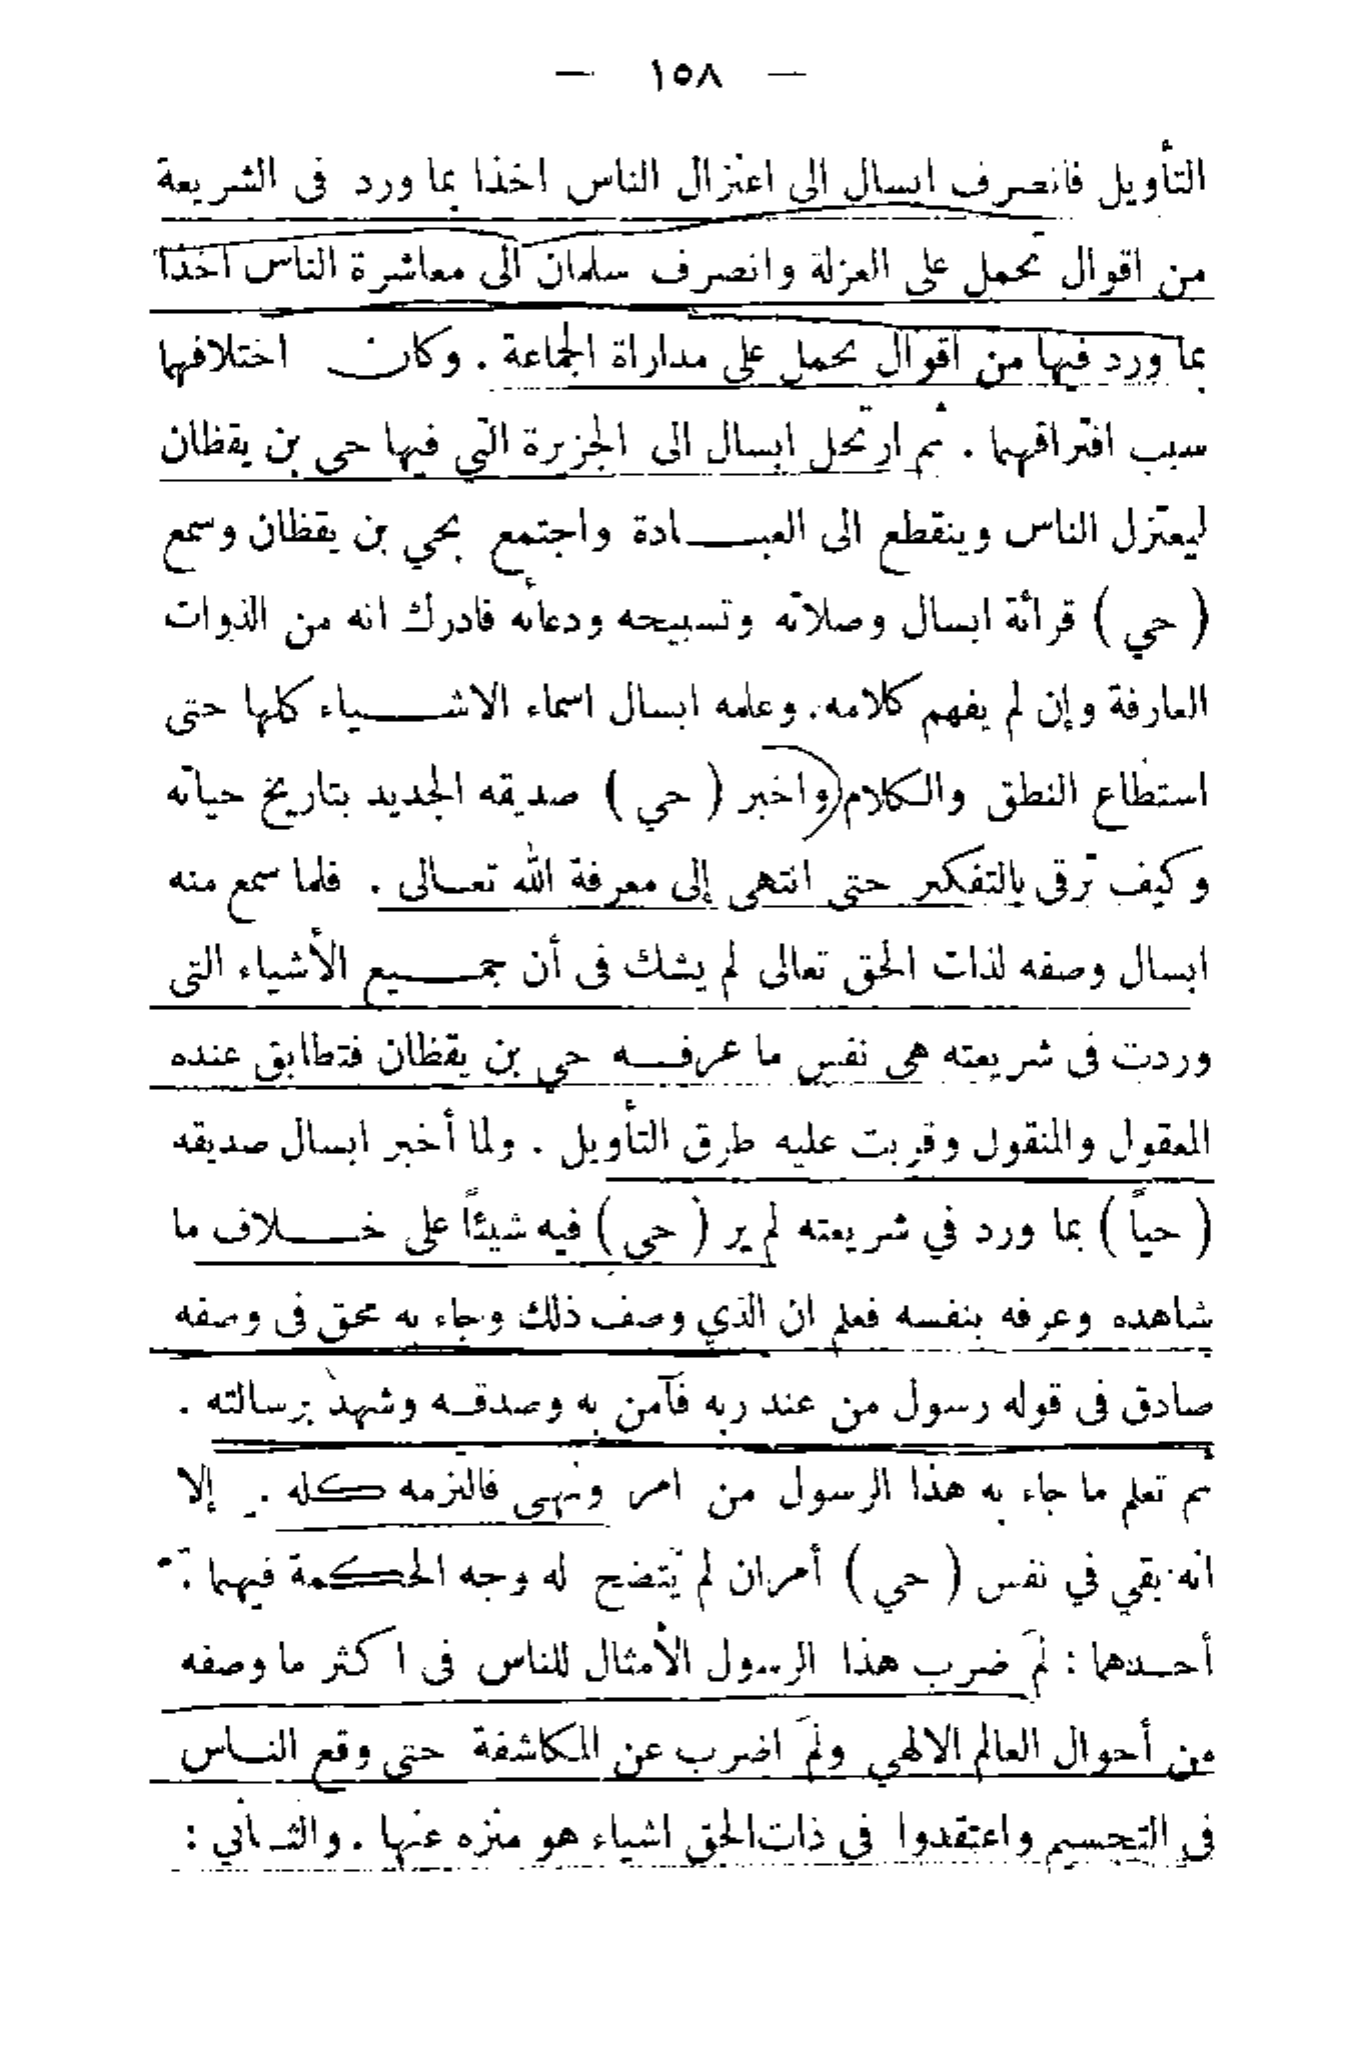 — ١٥٨ —
التأويل فانصرف ابسال الى اعتزال الناس اخذا بما ورد فى الشريعة
من اقوال تحمل على العزلة وانصرف سلمان الى معاشرة الناس اخذا
بما ورد فيها من اقوال تحمل على مداراة الجماعة . وكان اختلافهما
سبب افتراقهما . ثم ارتحل ابسال الى الجزيرة التي فيها حي بن يقظان
ليعتزل الناس وينقطع الى العبـــادة واجتمع بحي بن يقظان وسمع
( حي ) قرائة ابسال وصلاته وتسبيحه ودعائه فادرك انه من الذوات
العارفة وإن لم يفهم كلامه . وعلمه ابسال اسماء الاشـــياء كلها حتى
استطاع النطق والكلام ( واخبر ( حي ) صديقه الجديد بتاريخ حياته
وكيف ترقى بالتفكير حتى انتهى إلى معرفة الله تعـالى . فلما سمع منه
ابسال وصفه لذات الحق تعالى لم يشك فى أن جمـــيع الأشياء التى
وردت فى شريعته هى نفس ما عرفــه حي بن يقظان فتطابق عنده
المعقول والمنقول وقربت عليه طرق التأويل . ولما أخبر ابسال صديقه
( حياً ) بما ورد في شريعته لم ير ( حي ) فيه شيئاً على خـــلاف ما
شاهده وعرفه بنفسه فعلم ان الذي وصف ذلك وجاء به محق فى وصفه
صادق فى قوله رسول من عند ربه فآمن به وصدقـه وشهد برسالته .
ثم تعلم ما جاء به هذا الرسول من امر ونهى فالتزمه كله . إلا
انه بقي في نفس ( حي ) أمران لم يتضح له وجه الحكمة فيهما :
أحـدهما : لمَ ضرب هذا الرسول الأمثال للناس فى اكثر ما وصفه
من أحوال العالم الالهي ولمَ اضرب عن المكاشفة حتى وقع النـاس
فى التجسيم واعتقدوا فى ذات الحق اشياء هو منزه عنها . والثـاني :